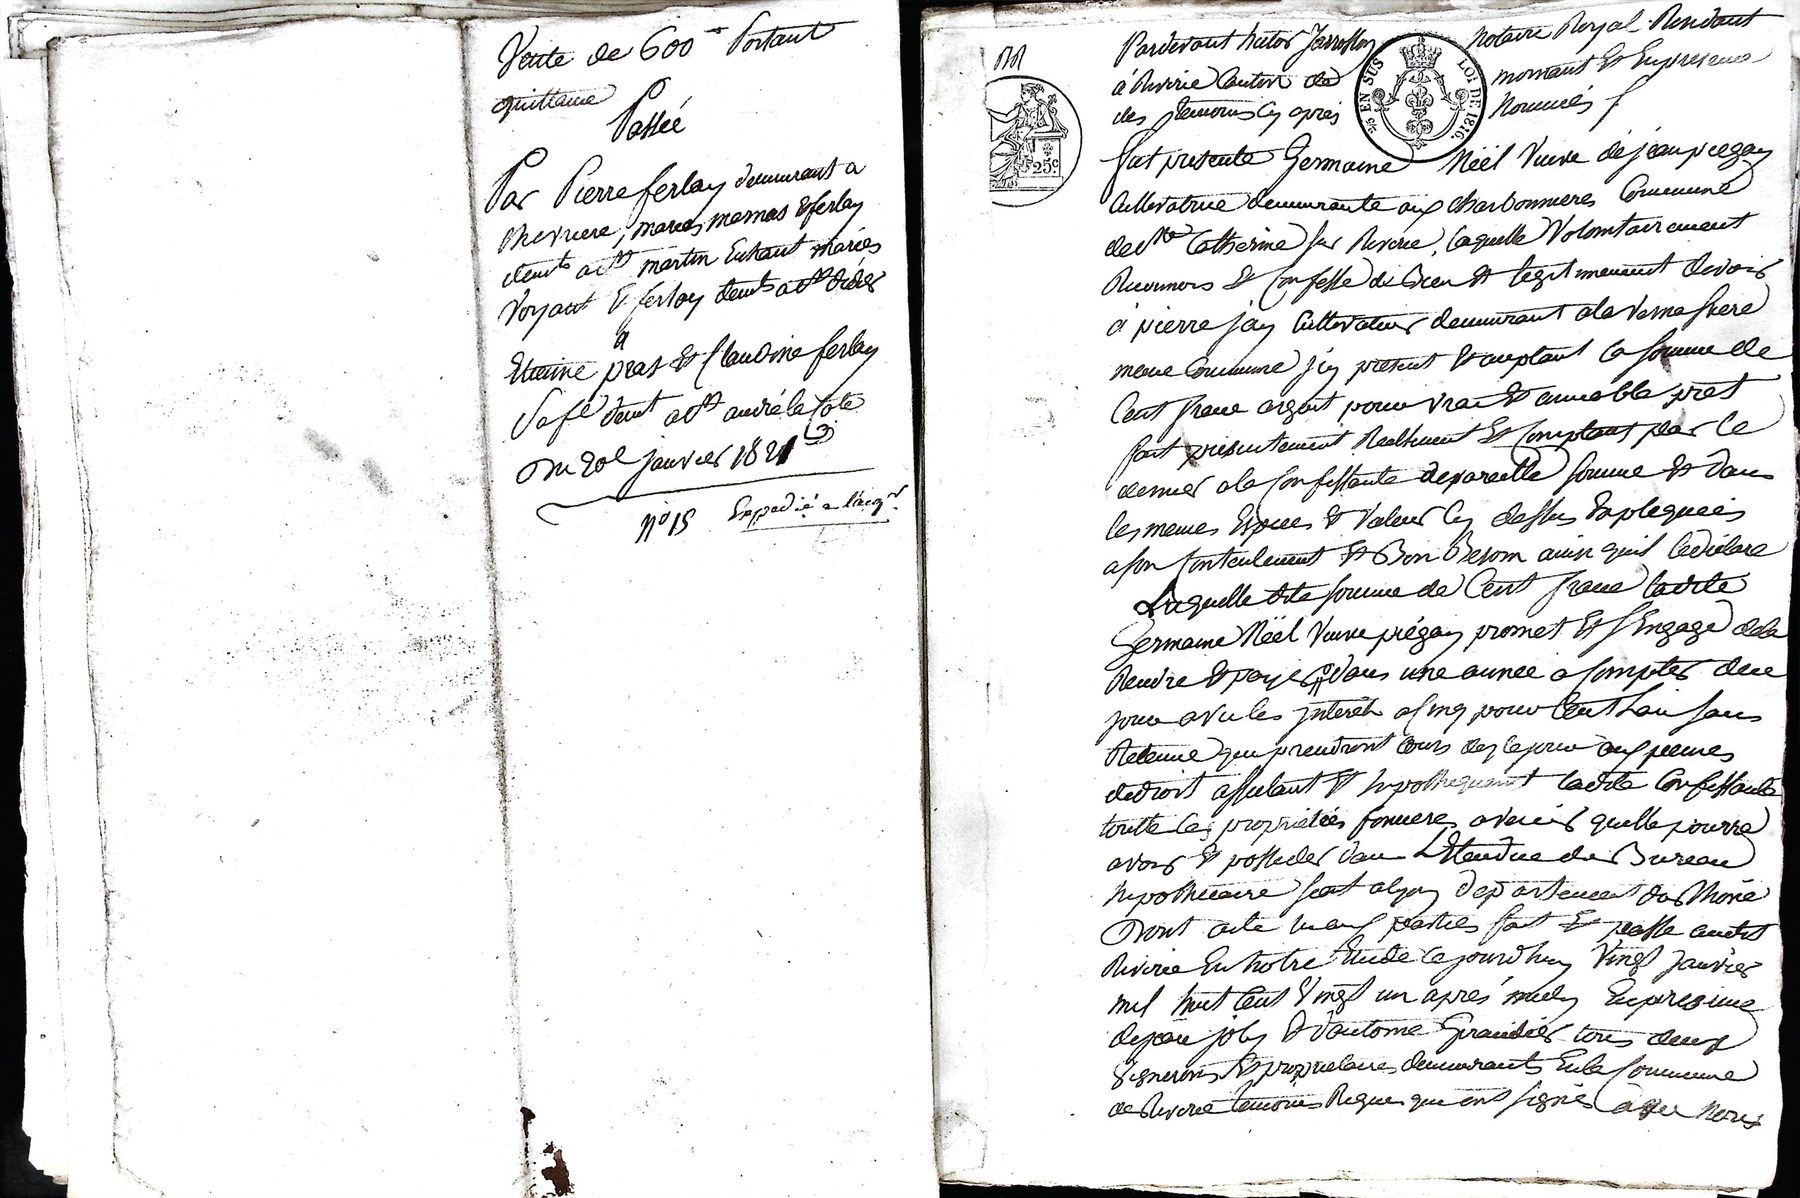 Vente de 600 Portant
quittance
Passée
Par Pierre ferlay demeurant a
mariés mamas & ferlay
demts a St martin Enhaut mariés
Voyant & ferlay demts a St didier
a
Etienne pras et Claudine ferlay
Sa fe demt a St andré la Cote
Du 20e janvier 1821
n° 15 Expedié a l'acqr
Pardevant notaire Royal Residant
à Riverie Canton de mornant Et Enpresence
des temoins Cy après Nommés
EN SUS LOI DE 1816.
25c.
fut presente Germaine Néel Veuve de jean piegay
Cultivatrice demeurante aux charbonnieres Commune
de Ste Catherine sur Riverie, laquelle Volontairement
Reconnois Et Confesse de bien Et legitimement devoir
à pierre jay Cultivateur demeurant a la
meme Commune icy present Et aceptant la somme de
Cent franc argent pour vrai Et amiable pret
fait presentement Reellement Et Comptant par le
dernier a la Confessante de pareille somme Et dans
les memes Especes Et Valeur Cy dessus Expliquees
a son Contentement Et Bon Besoin ainsi quil le déclare
Laquelle dite somme de Cent franc ladite
Germaine Néel Veuve piégay promet Et s'Engage de la
Rendre Et payer dans une année a Compter de ce
jour avec les interêts a Cinq pour Cent L'an sans
Retenue qui prendront Cours des ce jour aux peines
de droit affectant Et hypothequant ladite Confessante
toutte les proprietées foncieres a venir quelle pourra
avoir Et posseder dans L'Etendue du Bureau
hypothecaire seant a lyon departement du Rhône
Dont acte aux parties fait Et passé audit
Riverie En notre Etude Cejourd'huy Vingt janvier
mil huit Cent Vingt un aprés midy Enpresence
de jean joly Et d'antoine Grandier tous deux
Vignerons Et proprietaires demeurants En la Commune
de Riverie temoins Requis qui ont signés avec Nous